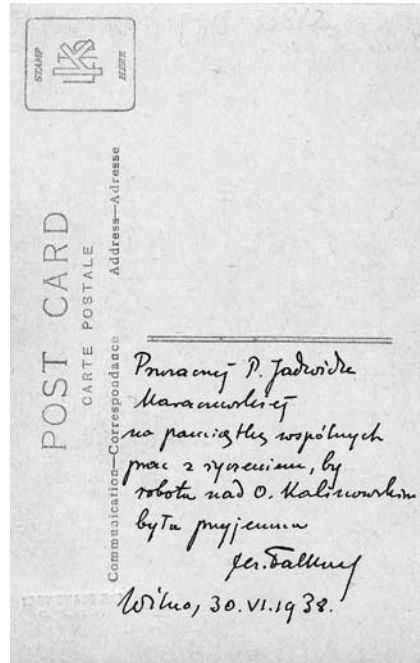 STAMP
HERE
POST CARD
CARTE POSTALE
Communication—Correspondance Address—Adresse
Przezacnej P. Jadwidze
na pamiątkę wspólnych
prac z życzeniem, by
robota nad O. Kalinowskim
była przyjemna
Wilno, 30.VI.1938.